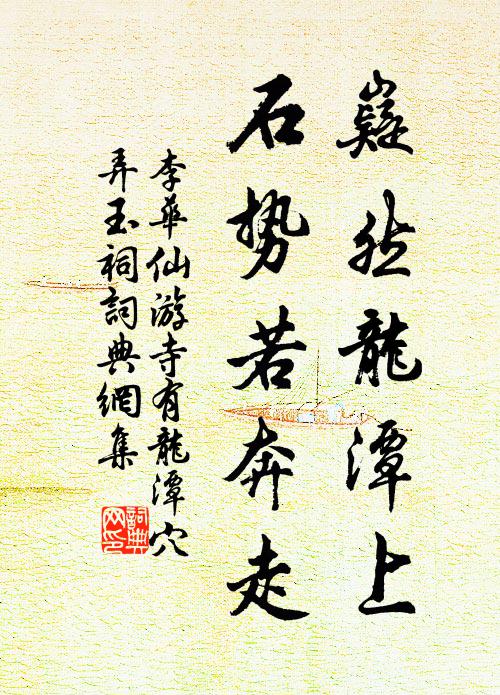 嶷然龍潭上
石势若奔走
李華仙游寺有龍潭穴
弄玉祠詞典網集
詞典
网印